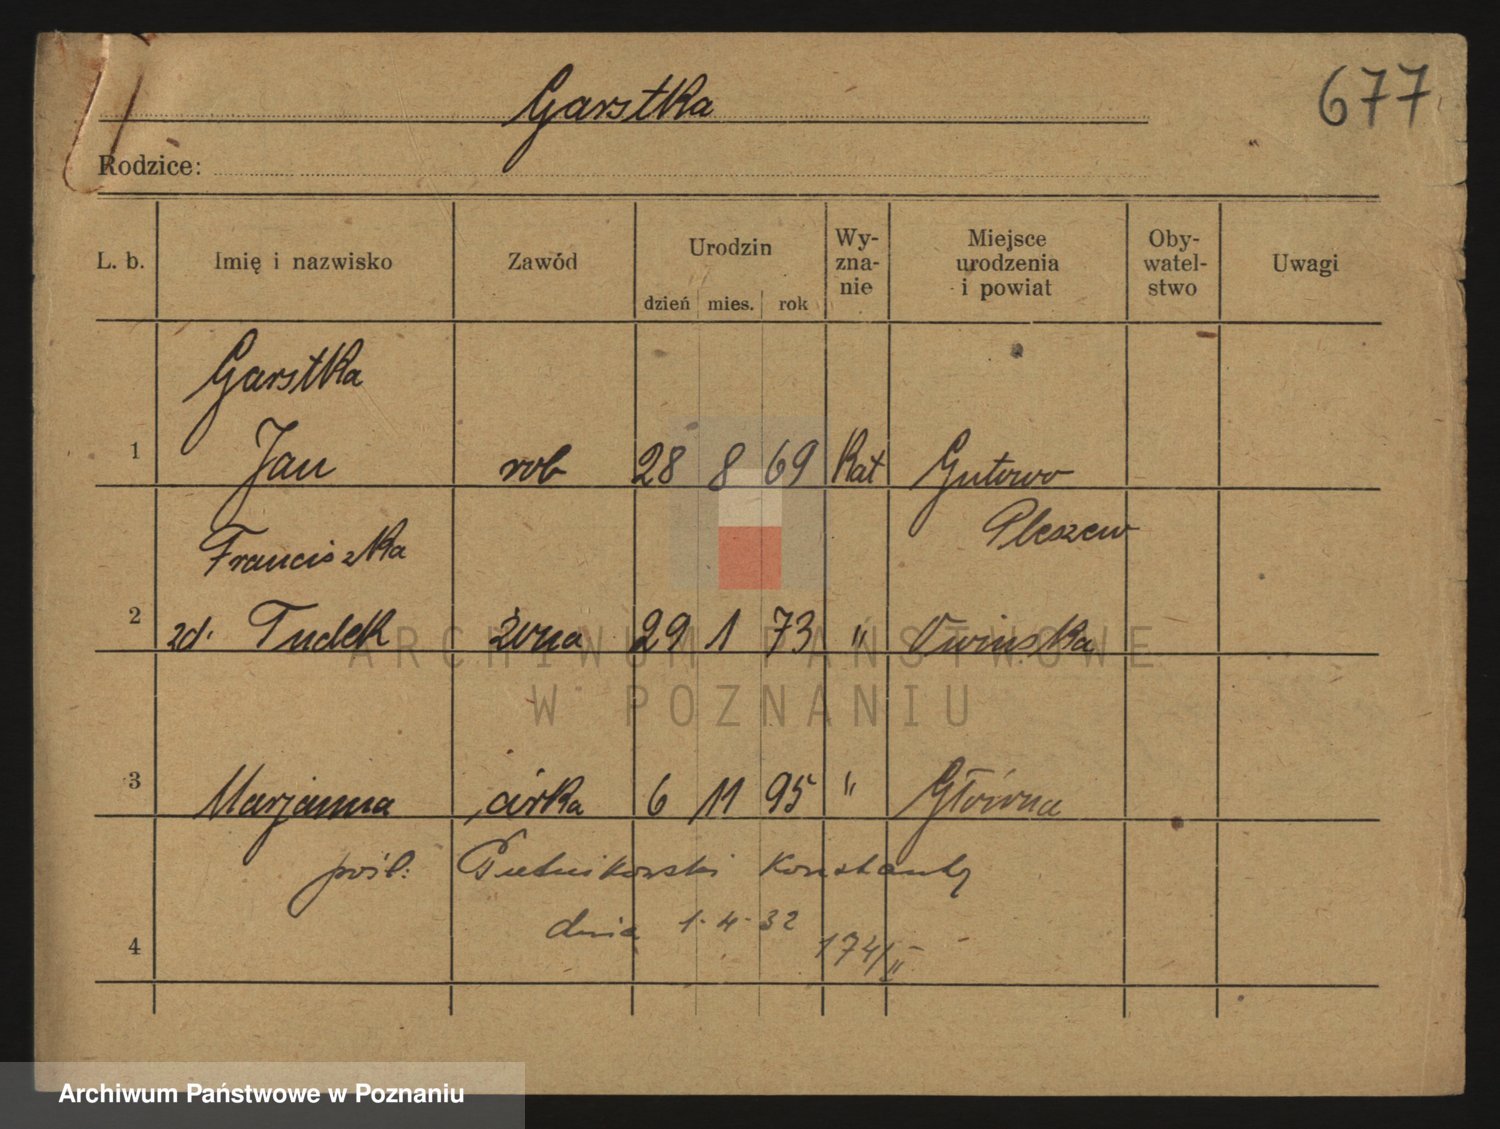 Garstka
677
Rodzice:
L. b. Imię i nazwisko Zawód Urodzin dzień mies. rok Wy-zna-nie Miejsce urodzenia i powiat Oby-watel-stwo Uwagi
Garstka
1 Jan rob 28 8 69 Kat Gutowo
Pleszew
Franciszka
2 zd. Tudek żona 29 1 73 " Owinska
ARCHIWUM PAŃSTWOWE
W POZNANIU
3 Marjanna córka 6 11 95 " Główna
pośl: Konstanty
dnia 1.4.32
174/II
4
Archiwum Państwowe w Poznaniu